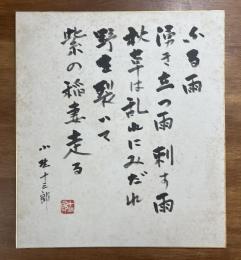 ふる雨
湧き立つ雨 刺す雨
秋草は乱れにみだれ
野を裂いて
紫の稲妻走る
小林十三郎